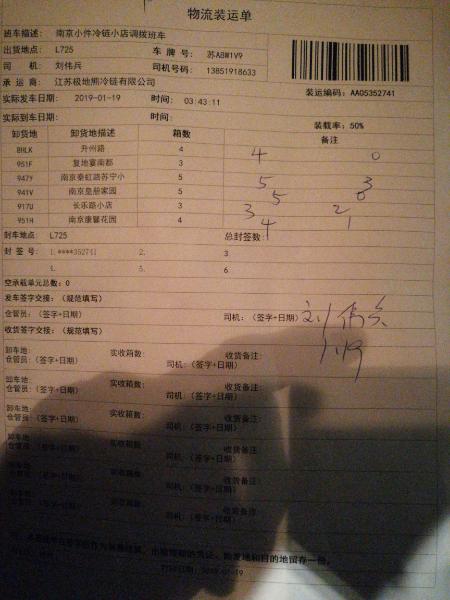 物流装运单
班车描述: 南京小件冷链小店调拨班车
出货地点: L725 车 牌 号: 苏A8W1V9
司 机: 刘伟兵 司机号码: 13851918633
承 运 商: 江苏极地熊冷链有限公司 装运编码: AA05352741
实际发车日期: 2019-01-19 时间: 03:43:11
实际到车日期: 时间: 装载率: 50%
卸货地 卸货地描述 箱数 备注
8HLK 升州路 4 4 0
951F 复地宴南都 3
947Y 南京秦虹路苏宁小 5 5 3
941V 南京皇册家园 5 5 0
917U 长乐路小店 3 3 2
951H 南京康馨花园 4 4 1
封车地点: L725 总封签数:
封 签 号: 1.****352741 2. 3
4. 5. 6
空承载单元总数: 0
发车签字交接: (规范填写)
仓管员: (签字+日期) 司机: (签字+日期) 刘伟兵
收货签字交接: (规范填写) 1.19
卸车地: 实收箱数: 收货备注:
仓管员: (签字+日期) 司机: (签字+日期)
卸车地: 实收箱数: 收货备注:
仓管员: (签字+日期) 司机: (签字+日期)
卸车地: 实收箱数: 收货备注:
仓管员: (签字+日期) 司机: (签字+日期)
卸车地: 实收箱数: 收货备注:
仓管员: (签字+日期) 司机: (签字+日期)
卸车地: 实收箱数: 收货备注:
仓管员: (签字+日期) 司机: (签字+日期)
卸车地: 实收箱数: 收货备注:
仓管员: (签字+日期) 司机: (签字+日期)